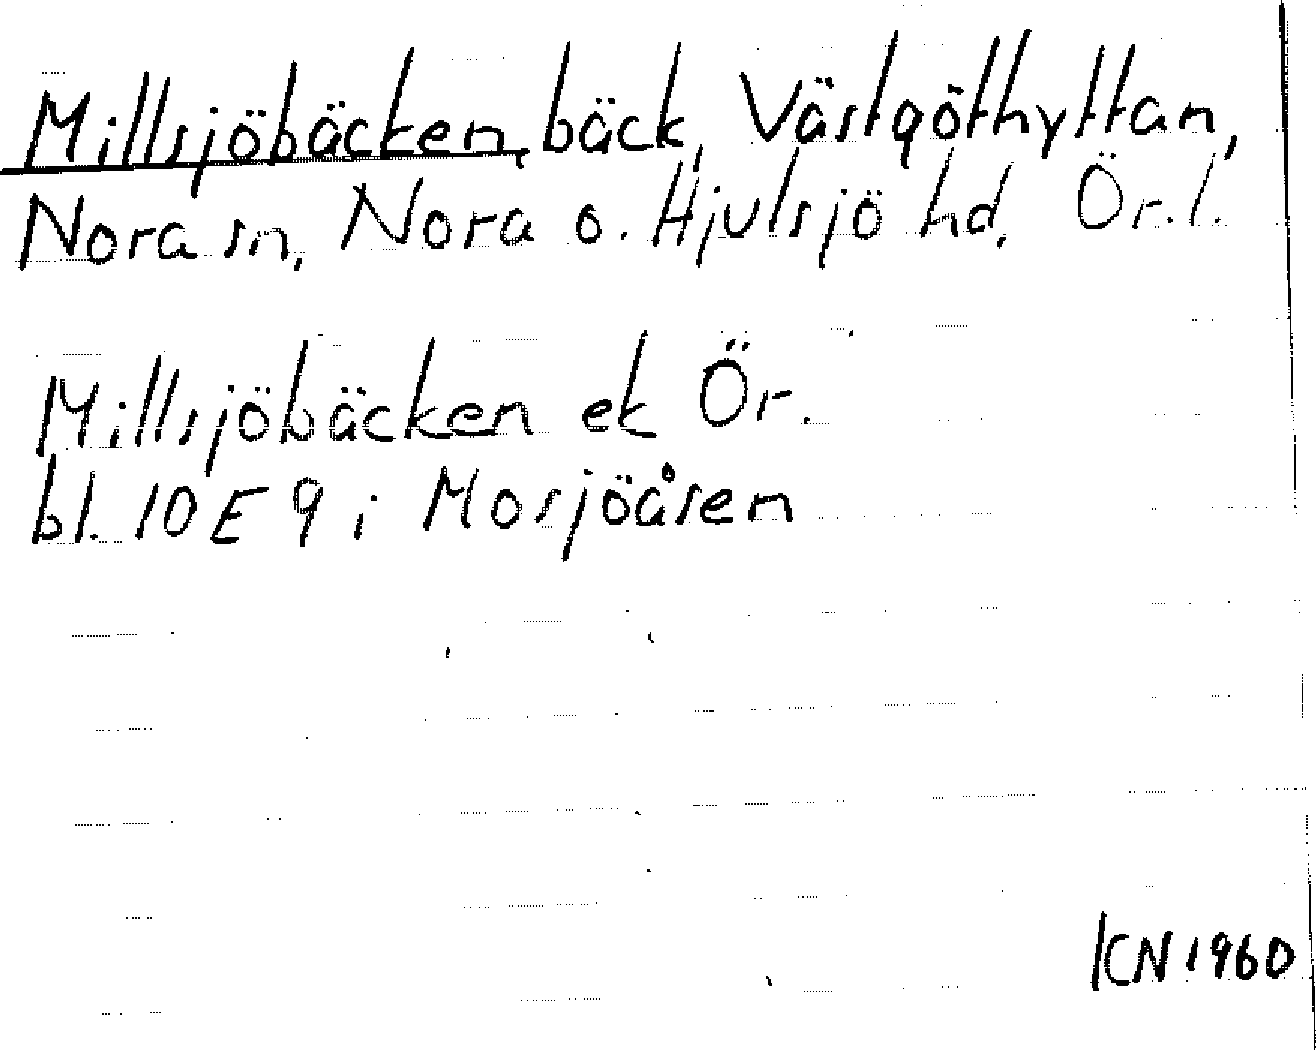 Millsjöbäcken, bäck, Västgöthyttan,
Nora sn, Nora o. Hjulsjö hd, Ör.l.
Millsjöbäcken ek Ör.
bl. 10E9i Mosjöåsen
KN 1960